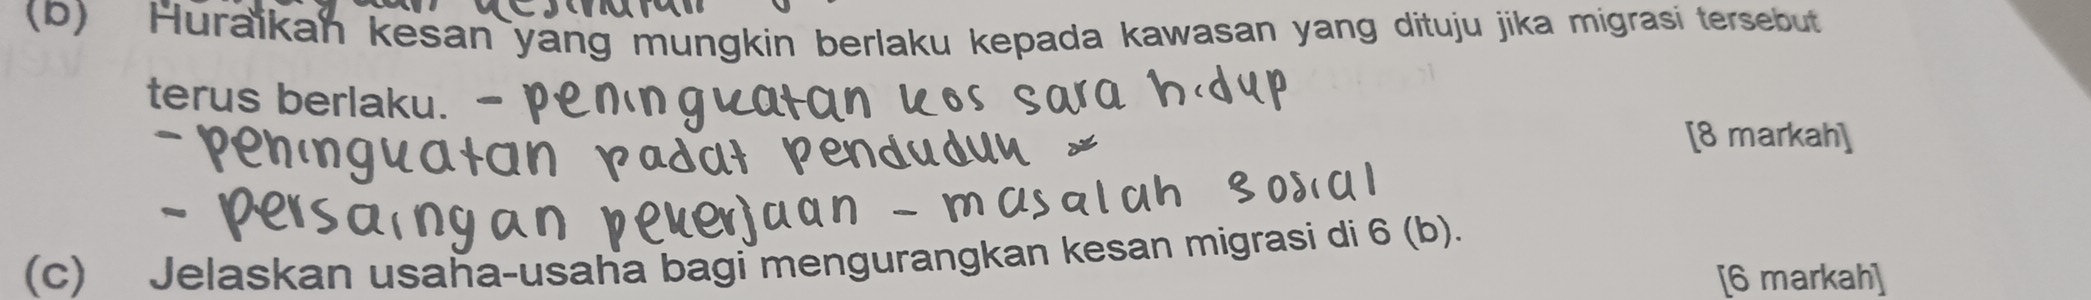 (b) Huraikan kesan yang mungkin berlaku kepada kawasan yang dituju jika migrasi tersebut
terus berlaku. - peningkatan kos sara hidup
- peningkatan padat penduduk
[8 markah]
- persaingan pekerjaan - masalah sosial
(c) Jelaskan usaha-usaha bagi mengurangkan kesan migrasi di 6 (b).
[6 markah]